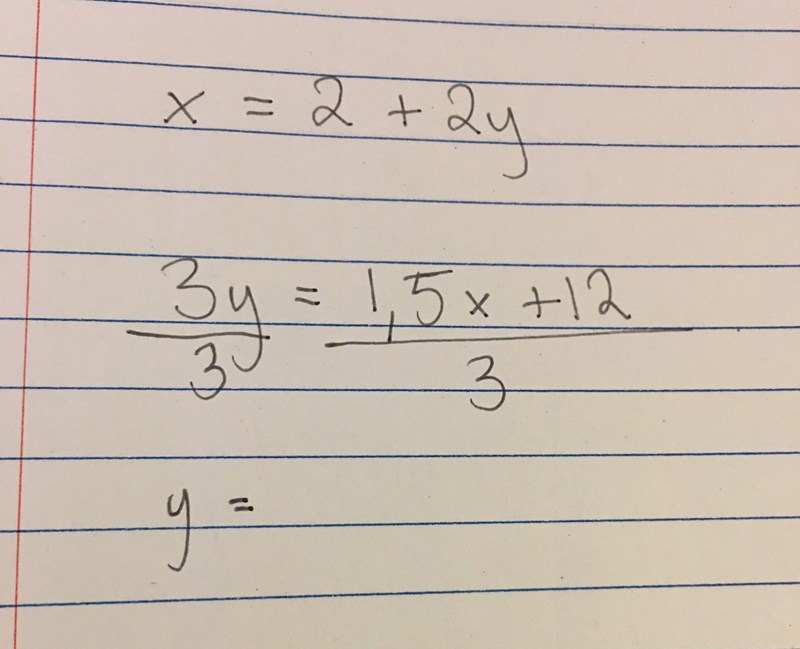 x = 2 + 2y
3y = 1,5x +12
3 3
y =